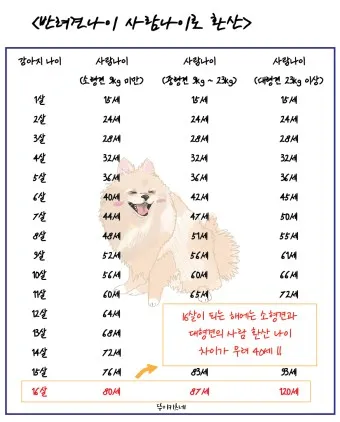 <반려견나이 사람나이로 환산>
강아지 나이 사람나이 사람나이 사람나이
(소형견 9kg 미만) (중형견 9kg ~ 23kg) (대형견 23kg 이상)
1살 15세 15세 15세
2살 24세 24세 24세
3살 28세 28세 28세
4살 32세 32세 32세
5살 36세 36세 36세
6살 40세 42세 45세
7살 44세 47세 50세
8살 48세 51세 55세
9살 52세 56세 61세
10살 56세 60세 66세
11살 60세 65세 72세
12살 64세
13살 68세
14살 72세
16살이 되는 해에는 소형견과
대형견의 사람 환산 나이
차이가 무려 40세 !!
15살 76세 83세 93세
16살 80세 87세 120세